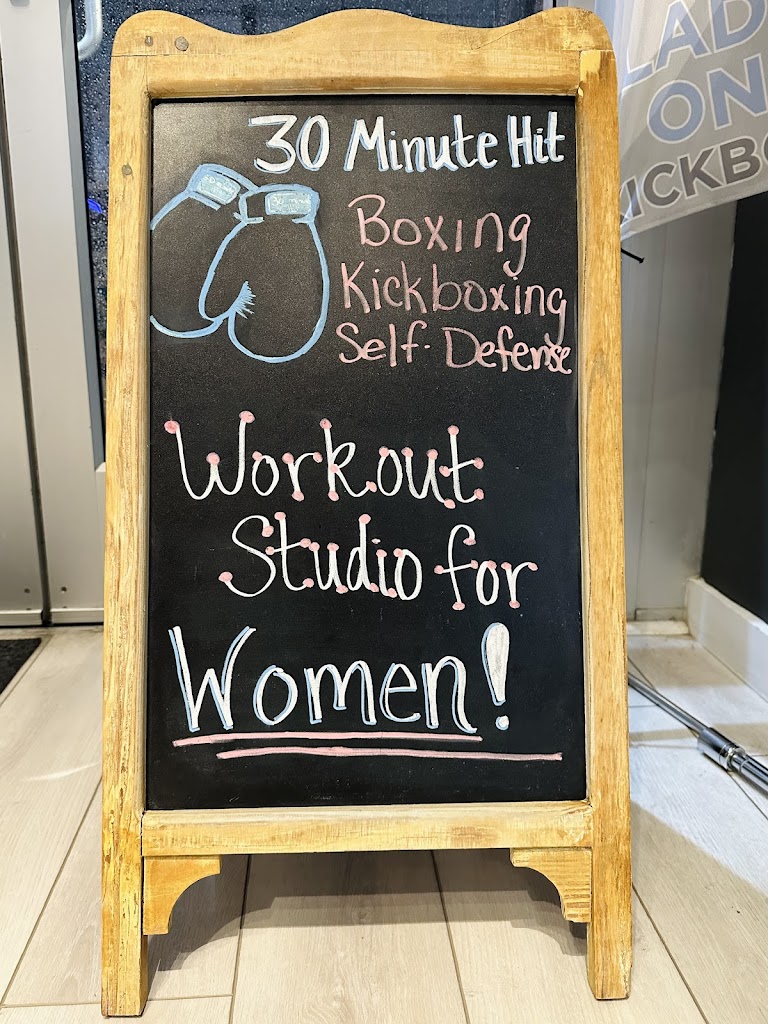 30 Minute Hit
Boxing
Kickboxing
Self-Defense
Workout
Studio for
Women!
LAD
ON
KICKBO